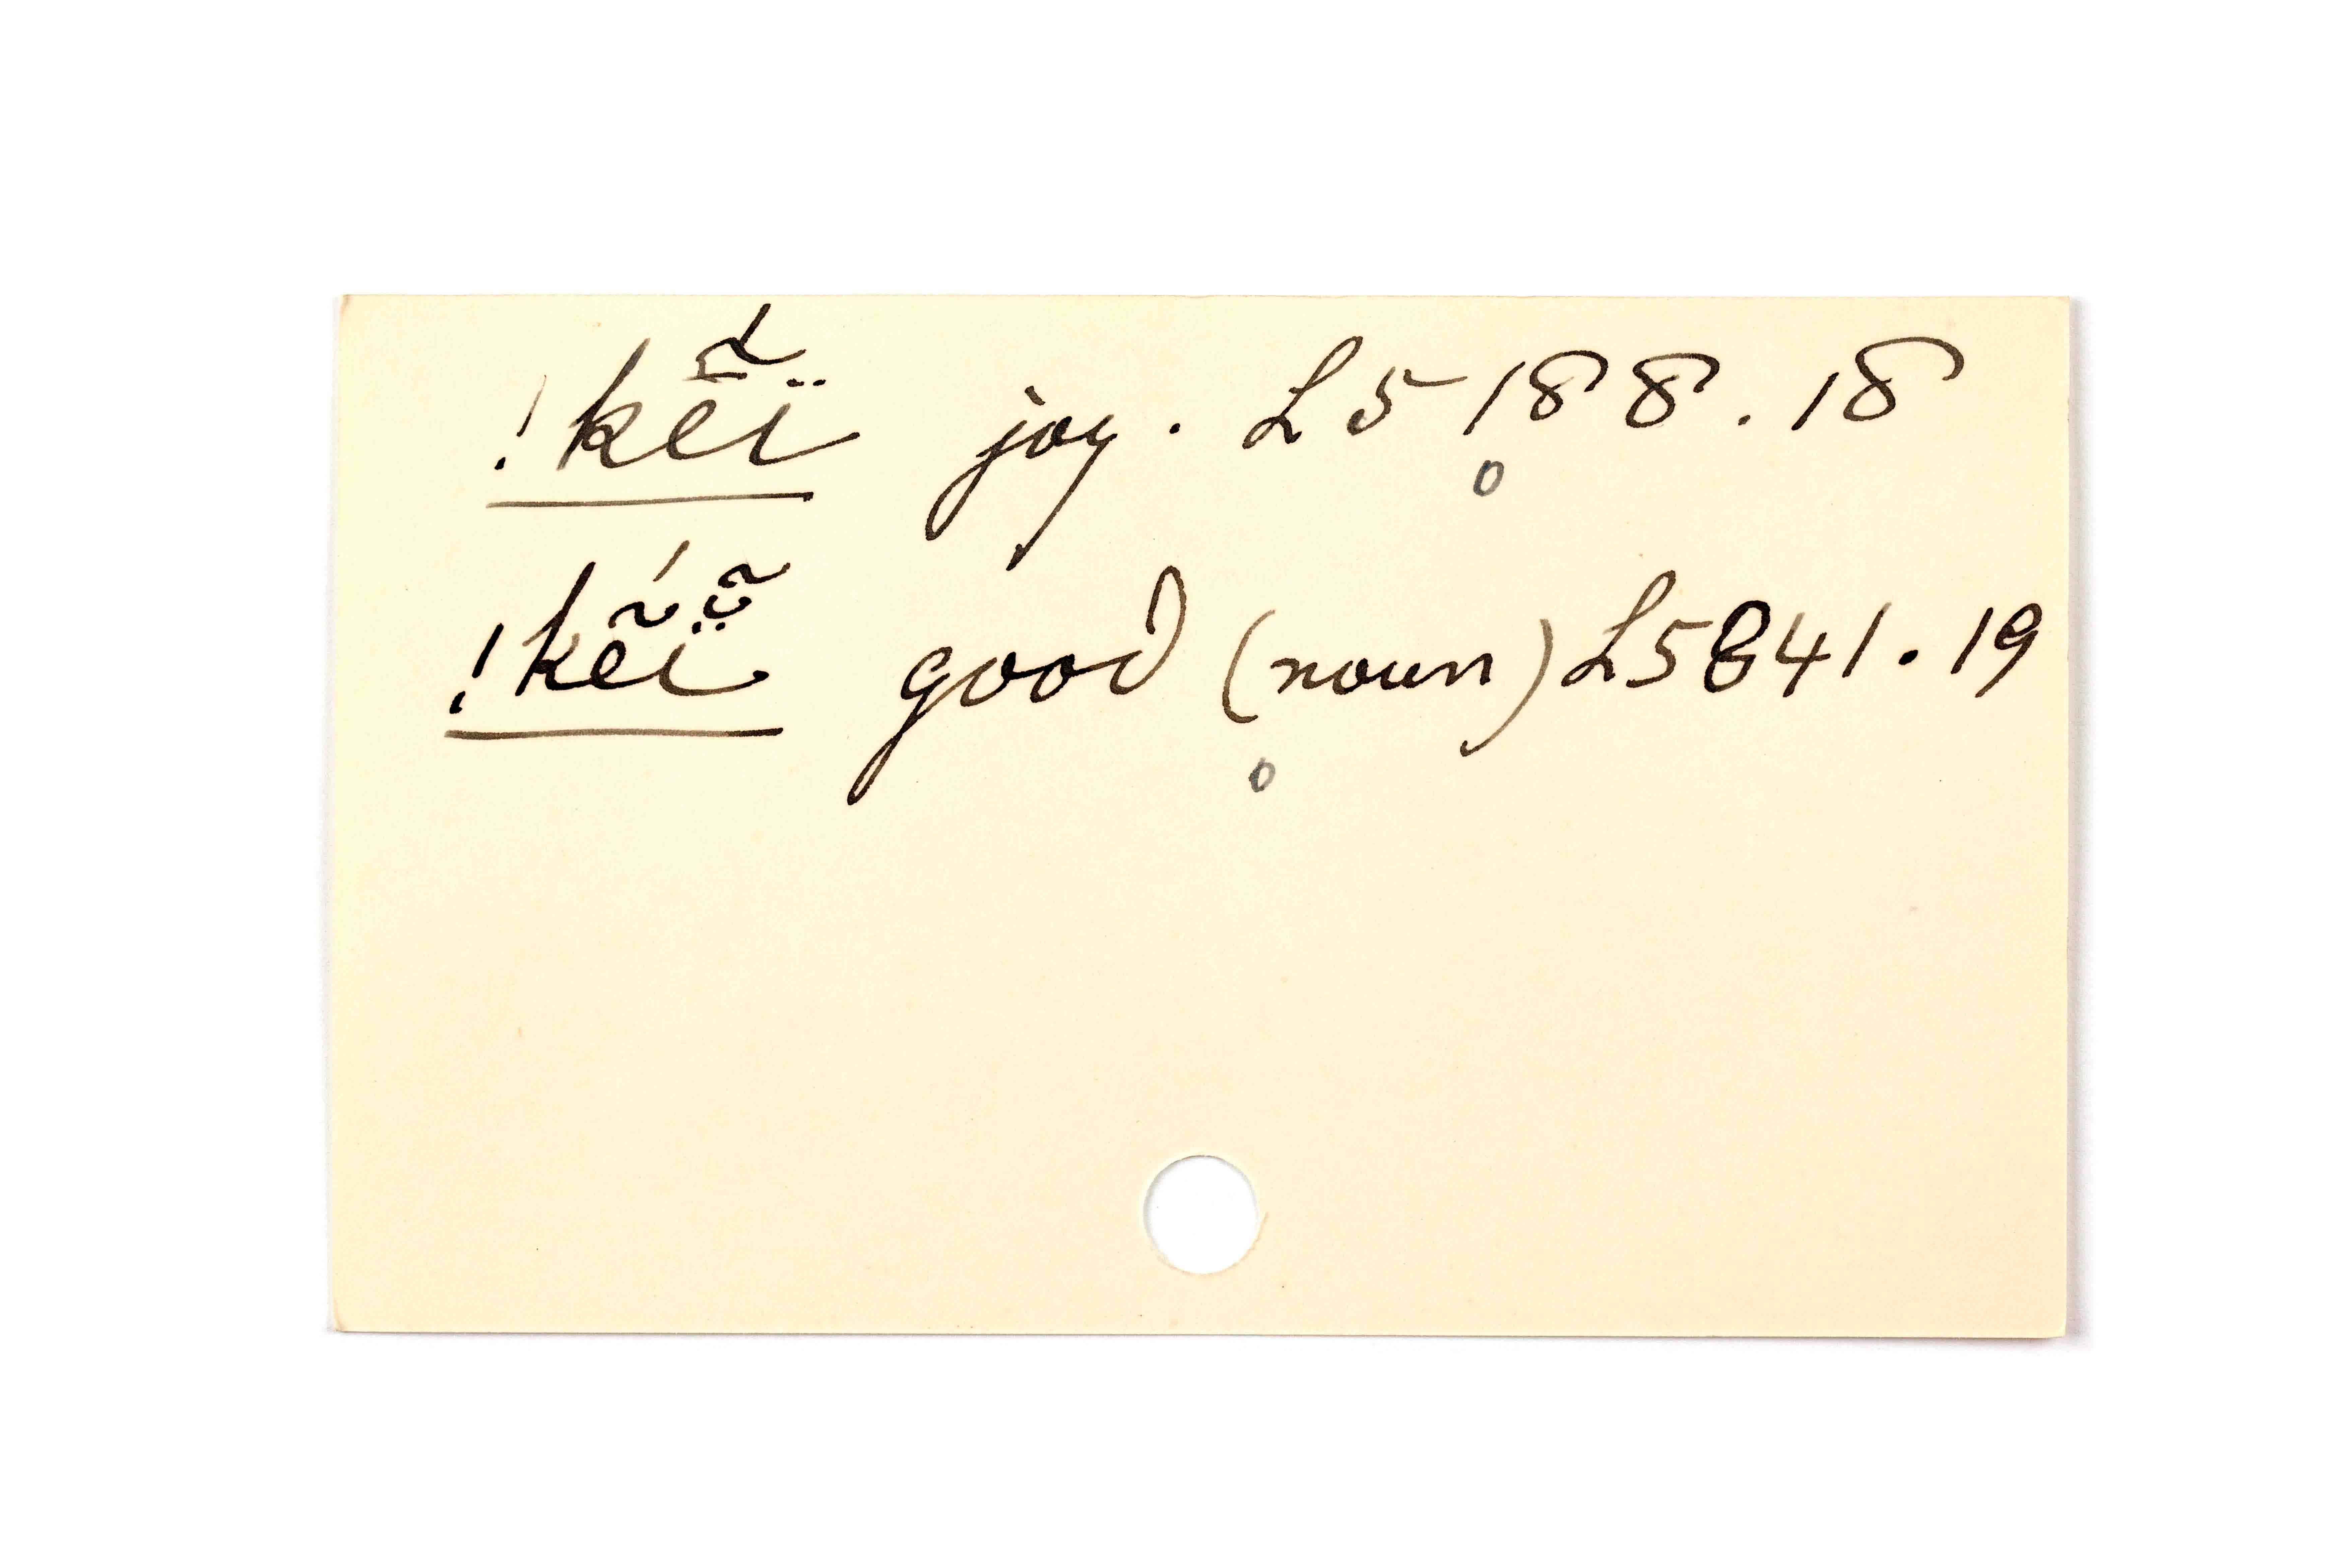 !kẽ́ï joy. L5188.18
!kẽ́ï̯̃ good (noun) L5841.19